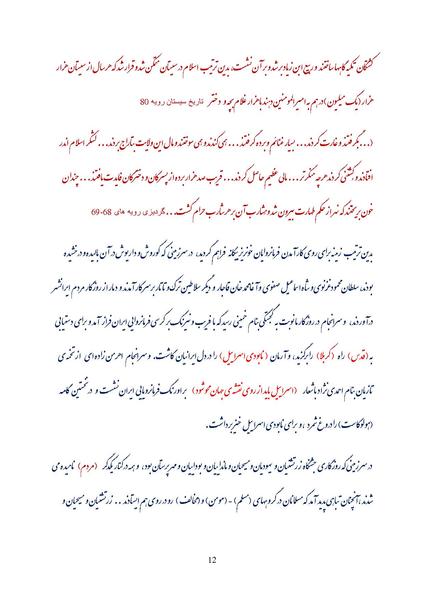 کشتگان تکیه گاهها ساختند و ربیع ابن زیاد بر شد و بر آن نشست، بدین ترتیب اسلام در سیستان متمکن شد و قرار شد که هر سال از سیستان هزار
هزار (یک میلیون) درهم به امیرالمومنین دهند با هزار غلام بچه و دختر تاریخ سیستان رویه 80
(... بگرفتند و غارت کردند... بسیار غنائم و برده گرفتند... می کندند و می سوختند و مال این ولایت بتاراج بردند... لشگر اسلام اندر
افتادند و کشتنی کردند هر چه منکرتر... مالی عظیم حاصل کردند... قریب صد هزار برده از پسرکان و دخترکان فایدت یافتند... چندان
خون بریختند که نهر از حکم طهارت بیرون شد و شارب آن بر هر شارب حرام گشت... گردیزی رویه های 68-69
بدین ترتیب زمینه برای روی کار آمدن فرمانروایان خونریز بیگانه فراهم گردید، در سرزمینی که کوروش و داریوش در آن بالیده و درخشیده
بودند، سلطان محمود غزنوی و شاه اسماعیل صفوی و آغا محمد خان قاجار و دیگر سلاطین ترک و تاتار بر سر کار آمدند و دمار از روزگار مردم ایرانشهر
درآوردند، و سرانجام در روزگار ما نوبت به گجستگی بنام خمینی رسید که با فریب و نیرنگ بر کرسی فرمانروایی ایران فراز آمد و برای دستیابی
به (قدس) راه (کربلا) را برگزید، و آرمان (نابودی اسراییل) را در دل ایرانیان کاشت. و سرانجام اهرمن زاده ای از تخمه ی
تازیان بنام احمدی نژاد با شعار (اسراییل باید از روی نقشه ی جهان محو شود) بر اورنگ فرمانروایی ایران نشست و در نخستین گام
(هولوکاست) را دروغ شمرد، و برای نابودی اسراییل خیز برداشت.
در سرزمینی که روزگاری جشنگاه زرتشتیان و یهودیان و مسیحیان و ماندائیان و بوداییان و مهرپرستان بود، و همه در کنار یکدگر (مردم) نامیده می
شدند، آنچنان تباهی پدید آمد که مسلمانان در گروههای (مسلم) - (مومن) و (مخالف) رو در روی هم ایستادند... زرتشتیان و مسیحیان و
12